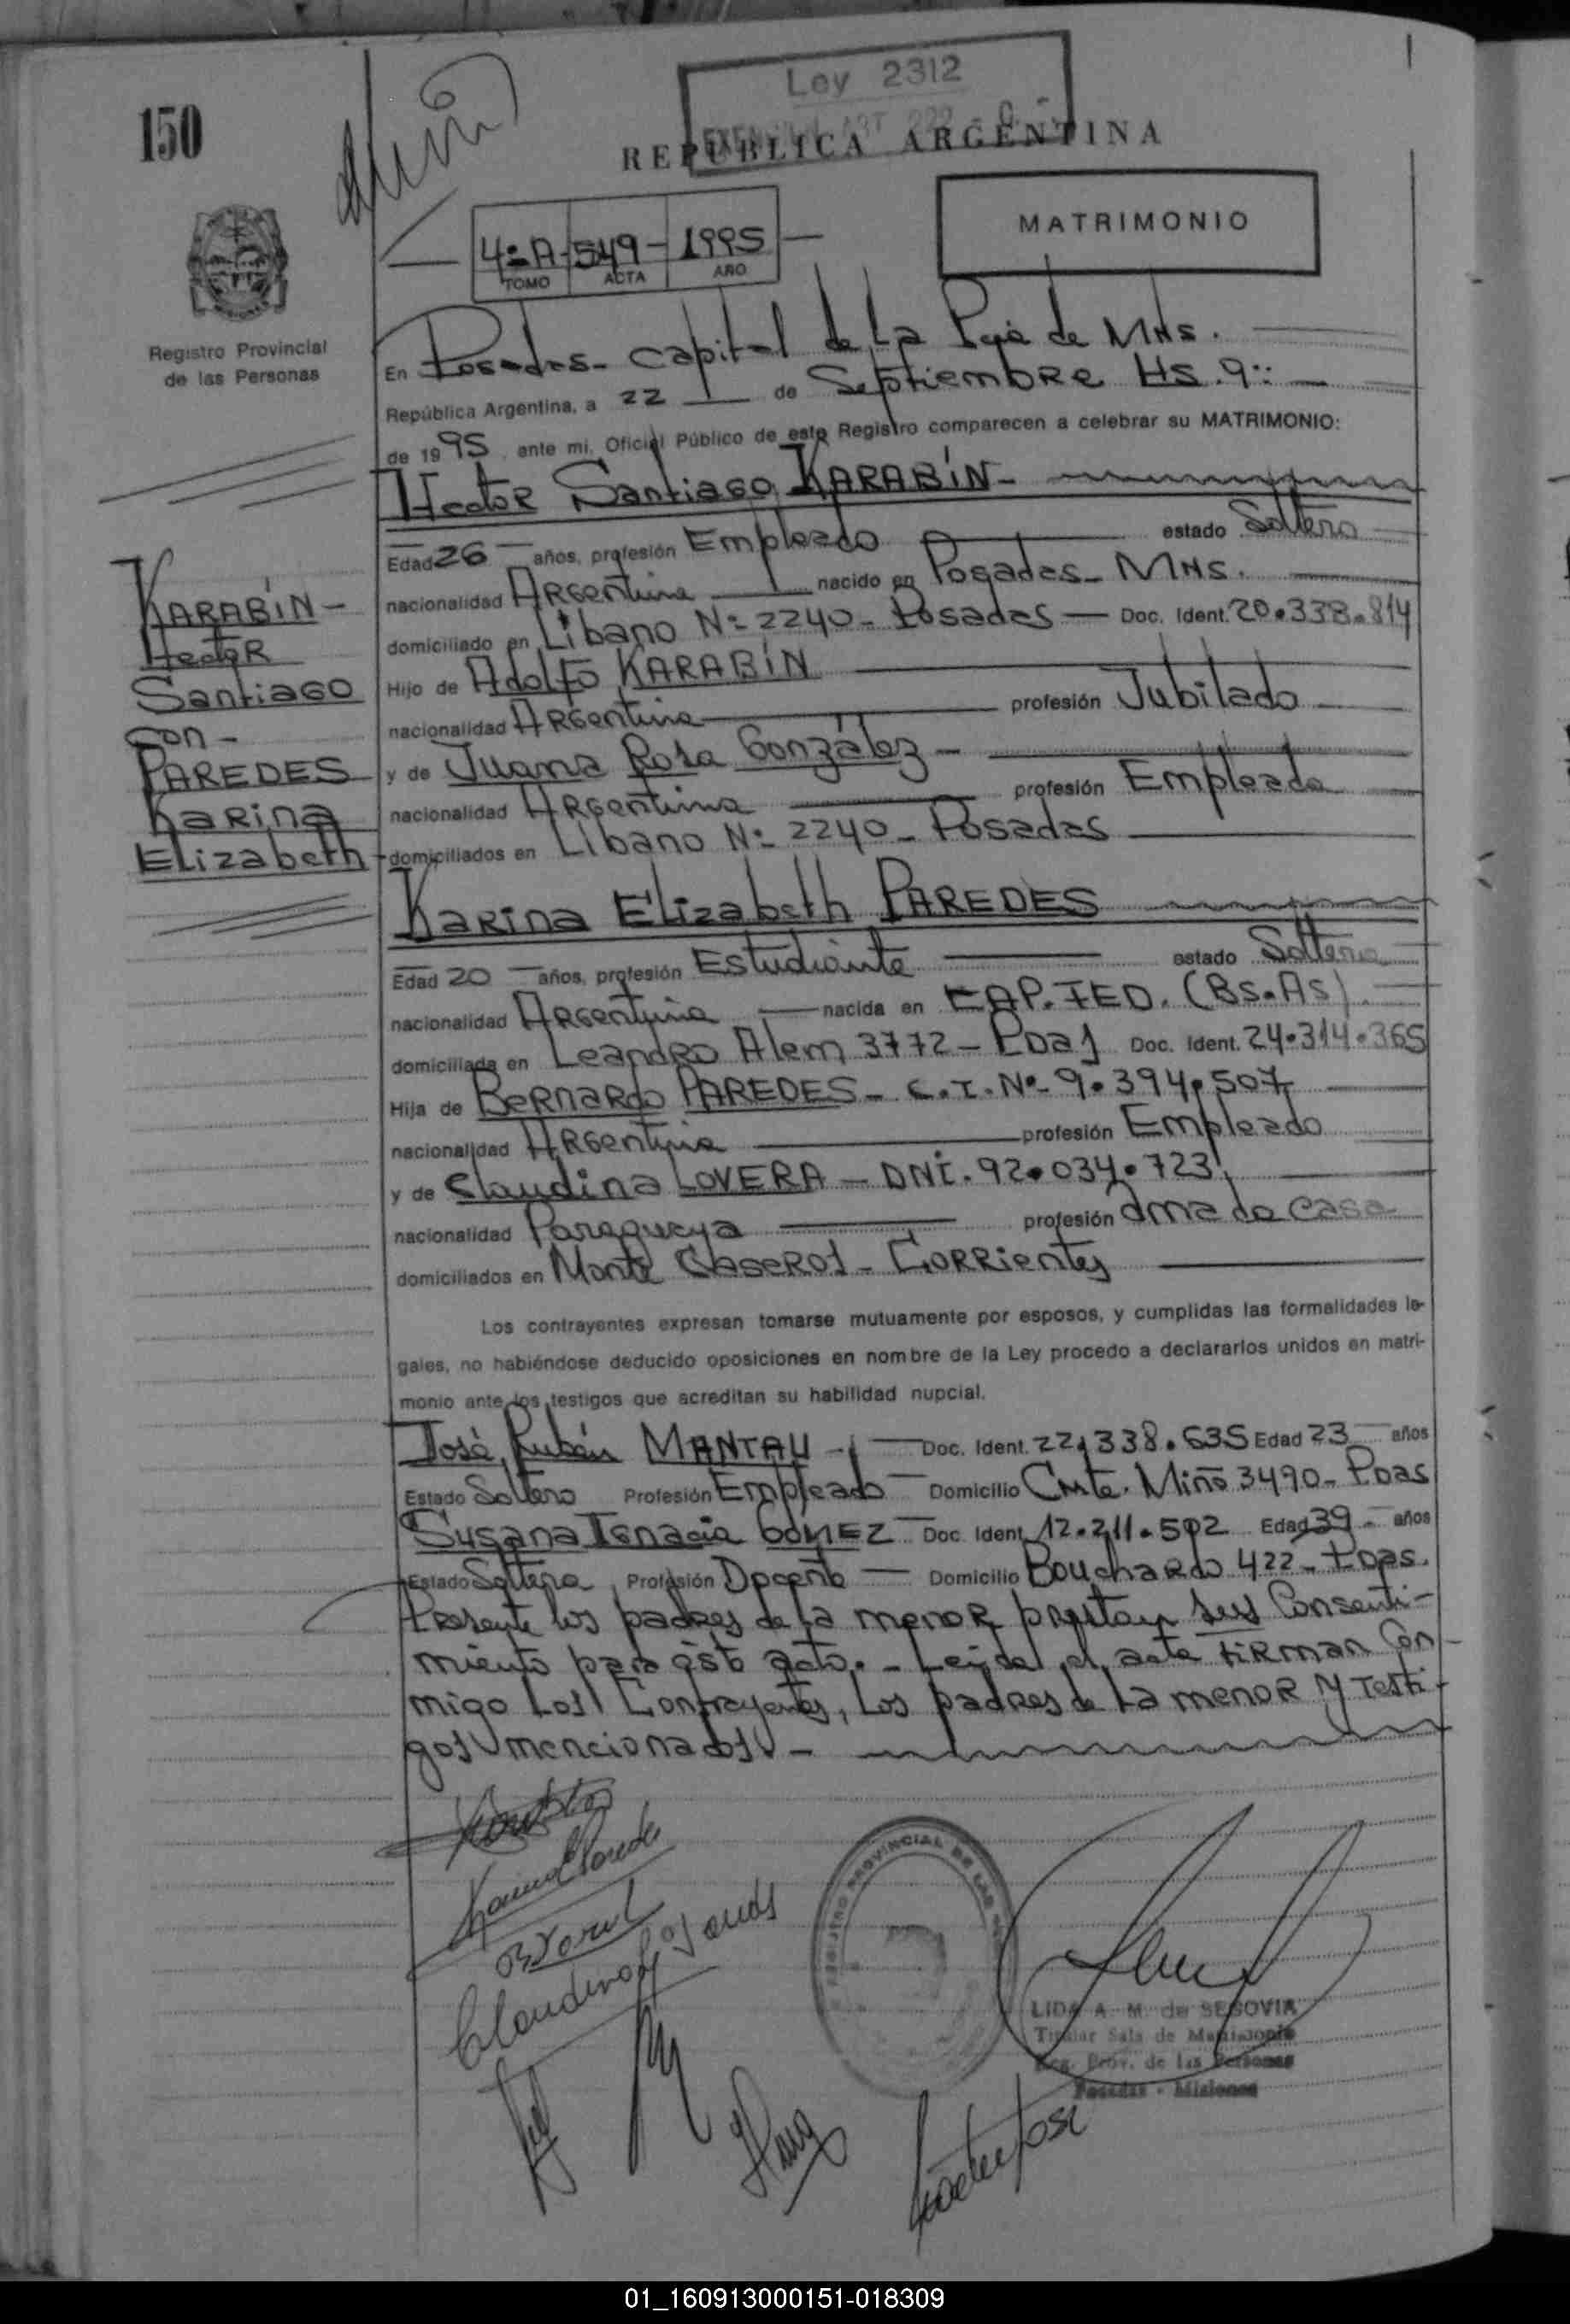 150
Ley 2312
REPUBLICA ARGENTINA
MATRIMONIO
4=A- 549- 1995
TOMO ACTA AÑO
Registro Provincial
de las Personas
En Posadas- Capital de La Pcia de MNS.
República Argentina, a 22 de Septiembre HS. 9::
de 1995, ante mi, Oficial Público de este Registro comparecen a celebrar su MATRIMONIO:
Hector Santiago KARABÍN-
Edad 26 años, profesión Empleado estado Soltero
nacionalidad Argentina nacido en Posadas- MNS.
domiciliado en Líbano N:= 2240- Posadas- Doc. Ident. 20.338.814
Hijo de Adolfo KARABÍN
nacionalidad Argentina profesión Jubilado
y de Juana Rosa González-
nacionalidad Argentina profesión Empleada
domiciliados en Líbano N:- 2240- Posadas
KARABÍN-
Hector
Santiago
con-
PAREDES
Karina
Elizabeth
Karina Elizabeth PAREDES
Edad 20 años, profesión Estudiante estado Soltera
nacionalidad Argentina nacida en CAP. FED. (Bs.As).
domiciliada en Leandro Alem 3772- Pdas Doc. Ident. 24.314.365
Hija de Bernardo PAREDES- C.I. Nº- 9.394.507
nacionalidad Argentina profesión Empleado
y de Claudina LOVERA- DNI. 92.034.723
nacionalidad Paraguaya profesión Ama de casa
domiciliados en Monte Caseros- Corrientes
Los contrayentes expresan tomarse mutuamente por esposos, y cumplidas las formalidades le-
gales, no habiéndose deducido oposiciones en nombre de la Ley procedo a declararlos unidos en matri-
monio ante los testigos que acreditan su habilidad nupcial.
José Rubén MANTAU- Doc. Ident. 22.338.635 Edad 23 años
Estado Soltero Profesión Empleado Domicilio Cnte. Miño 3490- Pdas
Susana Ignacia GÓMEZ Doc. Ident. 12.211.502 Edad 39- años
Estado Soltera Profesión Docente Domicilio Bouchardo 422- Pdas.
Presente los padres de la menor prestan sus Consenti-
miento para ésto acto.- Leída el acta FIRMAN Con
migo Los Contrayentes, Los padres de La menor y Testi-
gos mencionados.-
Claudina
LIDA A. M. de SEGOVIA
Titular Sala de Matrimonio
Reg. Prov. de las Personas
Posadas - Misiones
01_160913000151-018309